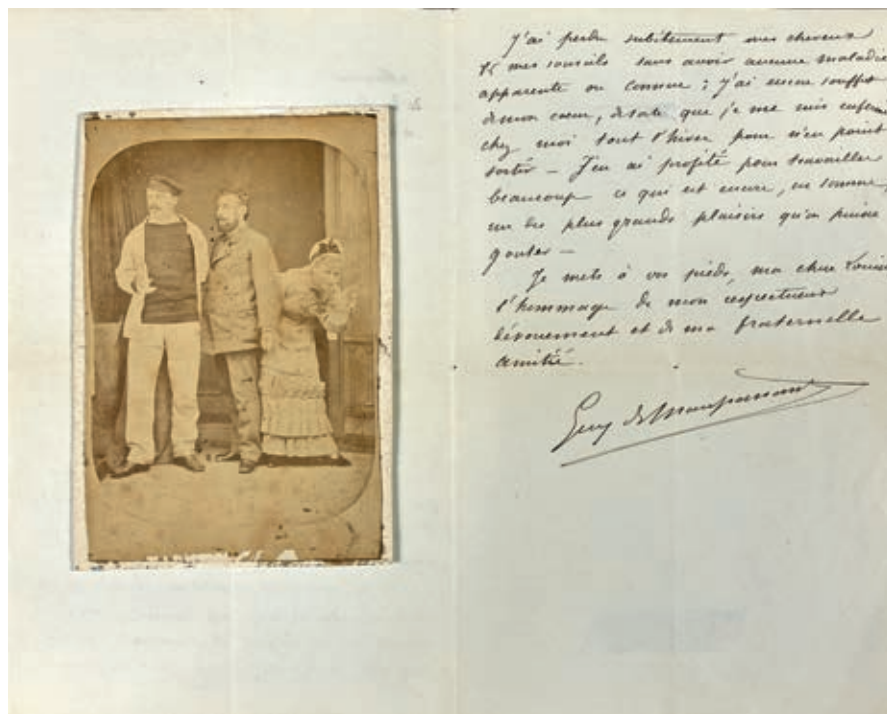 J'ai perdu subitement mes cheveux
& mes sourcils sans avoir aucune maladie
apparente ou connue ; j'ai encore souffert
de mon cœur, de sorte que je me suis enfermé
chez moi tout l'hiver pour n'en point
sortir — J'en ai profité pour travailler
beaucoup ce qui est encore, en somme,
un des plus grands plaisirs qu'on puisse
goûter —
Je mets à vos pieds, ma chère Louise
l'hommage de mon respectueux
dévouement et de ma fraternelle
amitié.
Guy de Maupassant